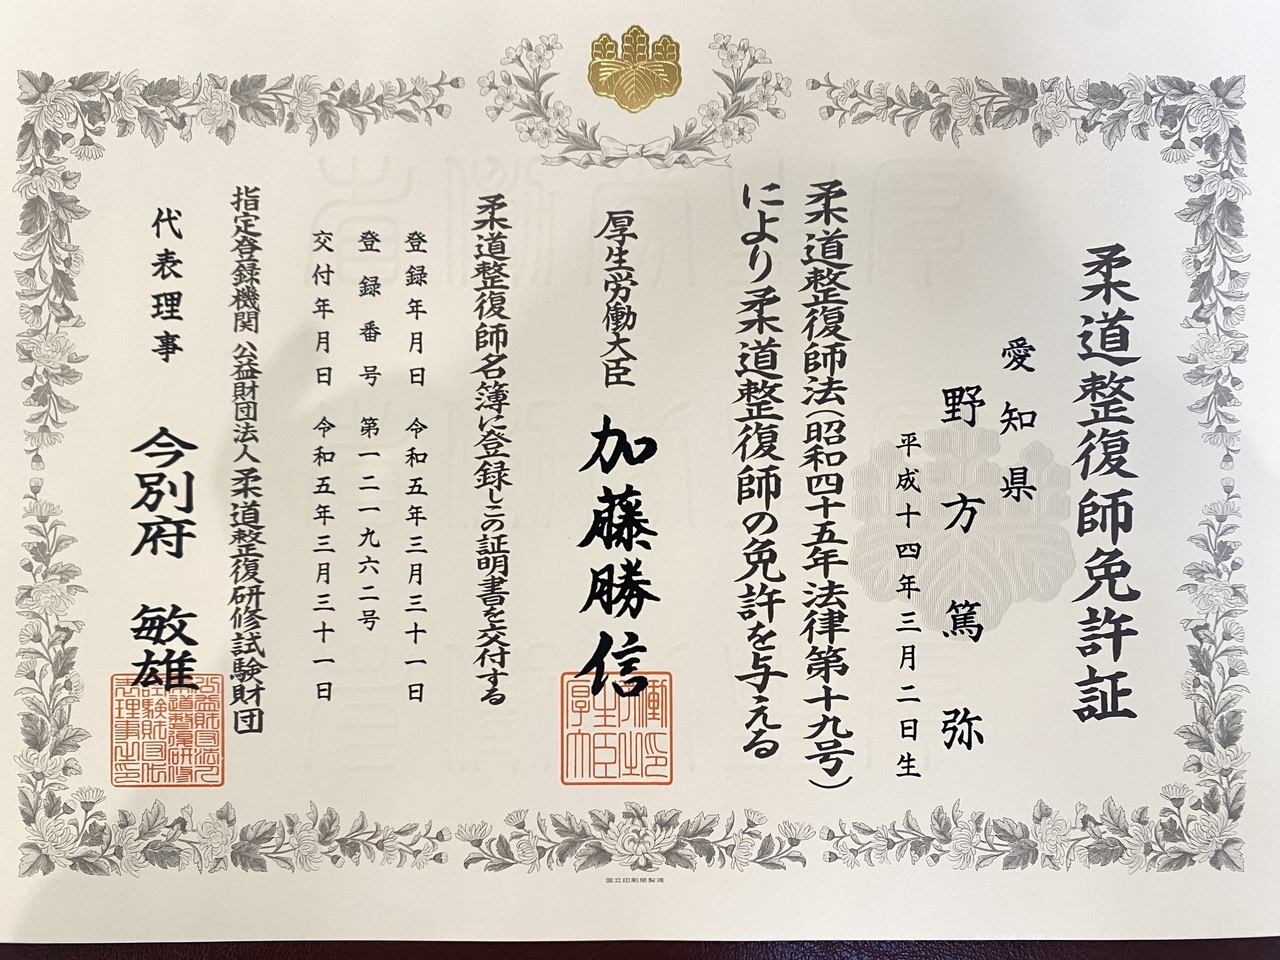 柔道整復師免許証
愛知県
野方篤弥
平成十四年三月二日生
柔道整復師法(昭和四十五年法律第十九号)
により柔道整復師の免許を与える
厚生労働大臣 加藤勝信
柔道整復師名簿に登録しこの証明書を交付する
登録年月日 令和五年三月三十一日
登録番号 第一二一九六二号
交付年月日 令和五年三月三十一日
指定登録機関 公益財団法人 柔道整復研修試験財団
代表理事 今別府 敏雄
国立印刷局製造